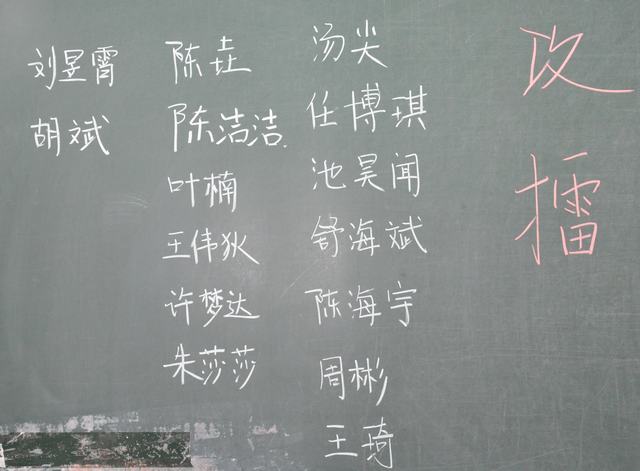 攻擂
汤尖
任博琪
池昊闻
舒海斌
陈海宇
周彬
王琦
陈垚
陈洁洁
叶楠
王伟狄
许梦达
朱莎莎
刘昱霄
胡斌